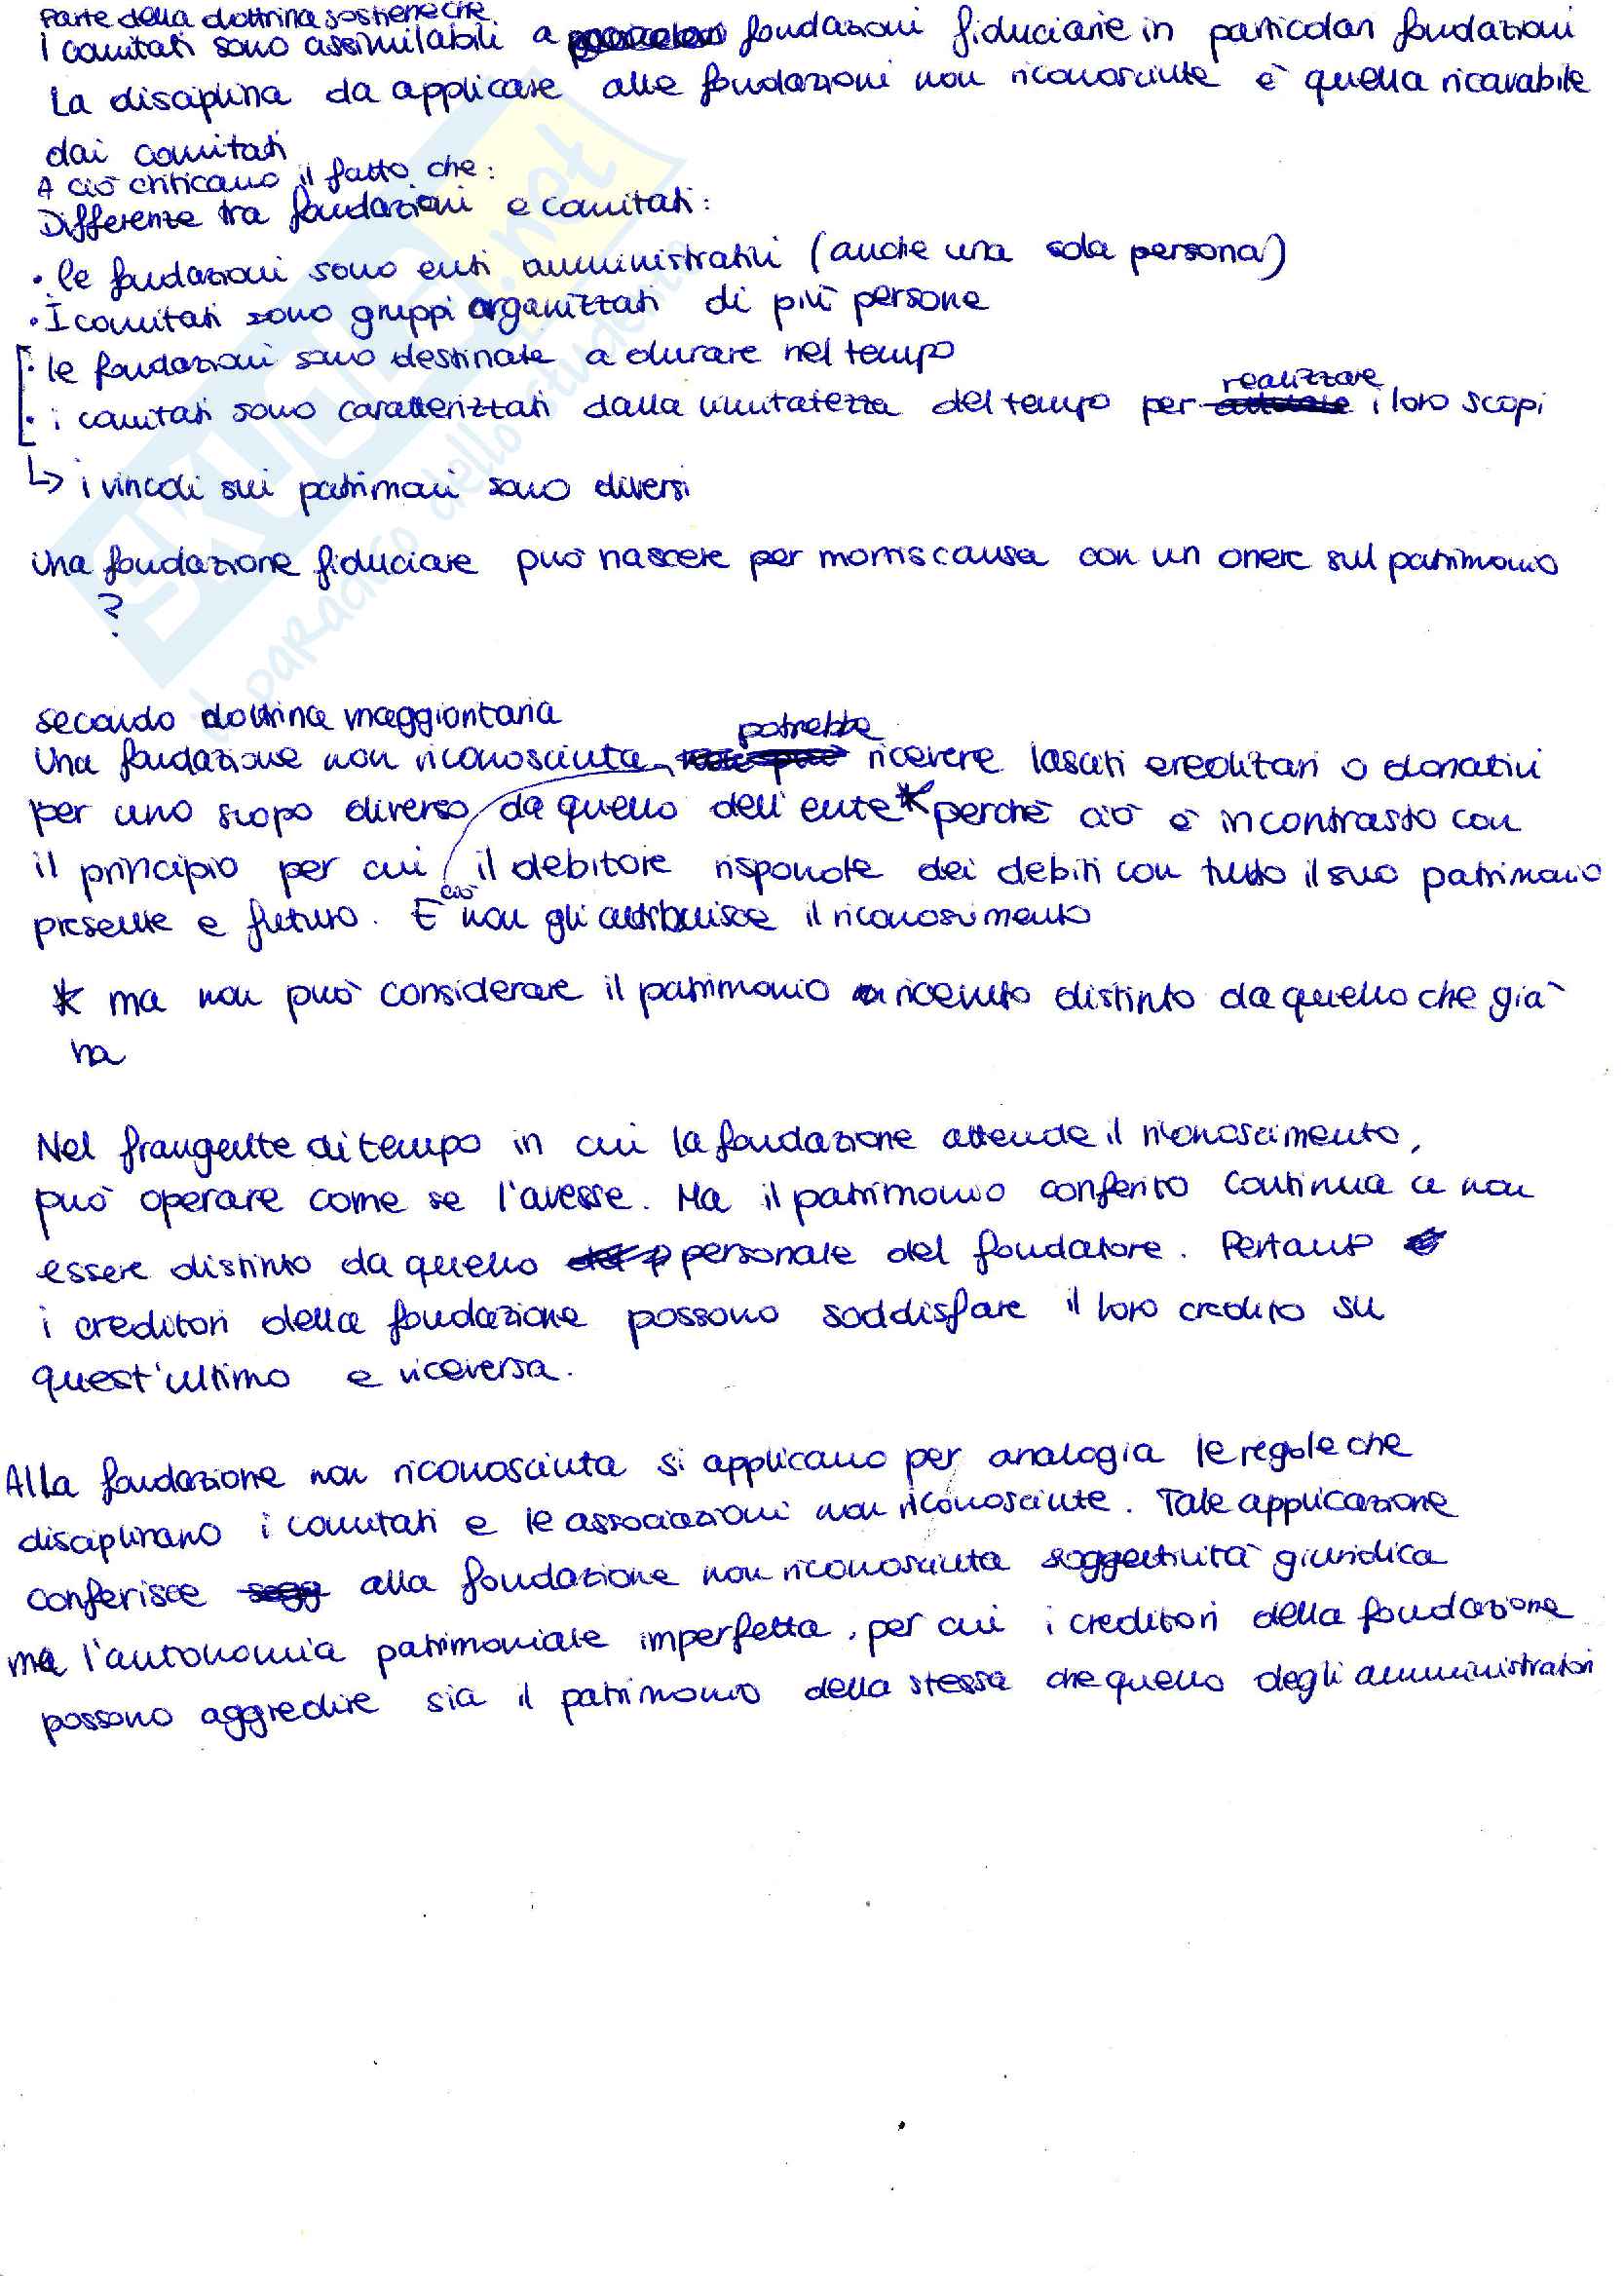 Parte della dottrina sostiene che
I comitati sono assimilabili a fondazioni fiduciarie in particolari fondazioni
La disciplina da applicare alle fondazioni non riconosciute è quella ricavabile
dai comitati
A ciò criticano il fatto che:
Differenze tra fondazioni e comitati:
• le fondazioni sono enti amministrativi (anche una sola persona)
• I comitati sono gruppi organizzati di più persone
• le fondazioni sono destinate a durare nel tempo
realizzare
• i comitati sono caratterizzati dalla limitatezza del tempo per i loro scopi
↳ i vincoli sui patrimoni sono diversi
Una fondazione fiduciare può nascere per mortis causa con un onere sul patrimonio
?
secondo dottrina maggioritaria
potrebbe
Una fondazione non riconosciuta ricevere lasciti ereditari o donativi
per uno scopo diverso da quello dell'ente * perché ciò è in contrasto con
il principio per cui il debitore risponde dei debiti con tutto il suo patrimonio
ciò
presente e futuro. E non gli attribuisce il riconoscimento
* ma non può considerare il patrimonio ricevuto distinto da quello che già
ha
Nel frangente di tempo in cui la fondazione attende il riconoscimento,
può operare come se l'avesse. Ma il patrimonio conferito continua a non
essere distinto da quello personale del fondatore. Pertanto
i creditori della fondazione possono soddisfare il loro credito su
quest'ultimo e viceversa.
Alla fondazione non riconosciuta si applicano per analogia le regole che
disciplinano i comitati e le associazioni non riconosciute. Tale applicazione
conferisce alla fondazione non riconosciuta soggettività giuridica
ma l'autonomia patrimoniale imperfetta, per cui i creditori della fondazione
possono aggredire sia il patrimonio della stessa che quello degli amministratori
SKUOLA.net
il paradiso dello studente